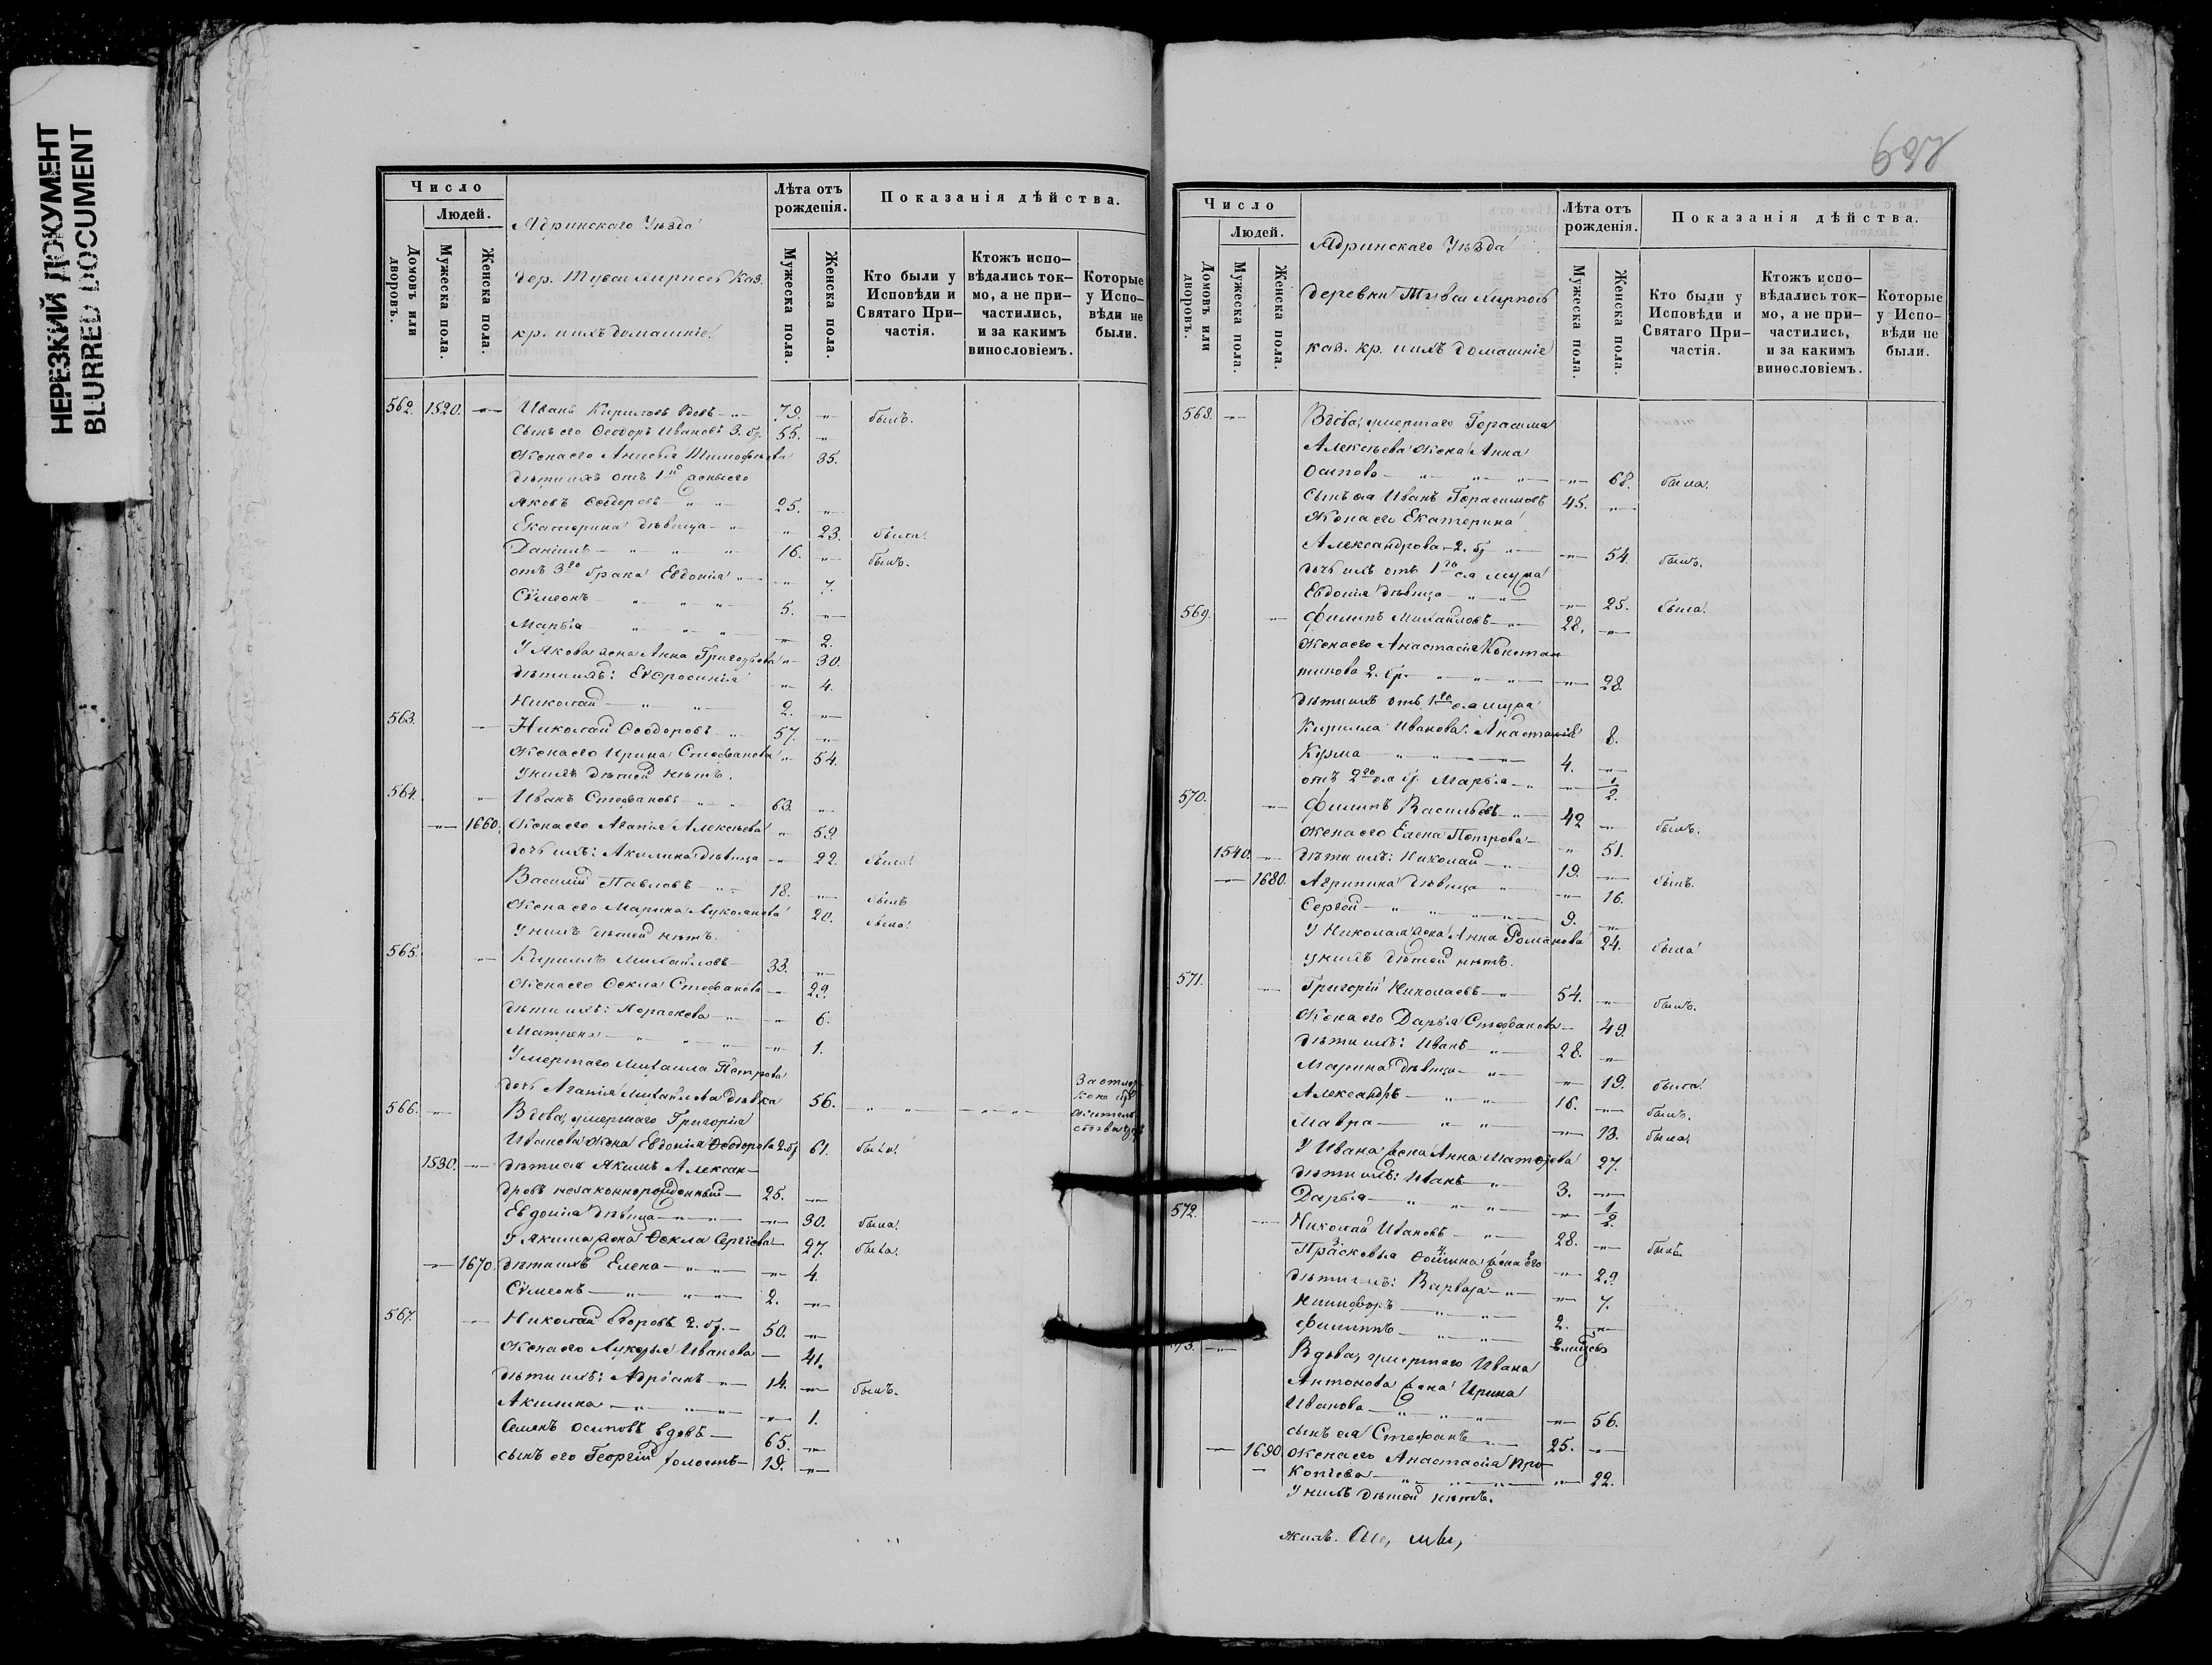 НЕРЕЗКИЙ ДОКУМЕНТ
BLURRED DOCUMENT
Число
Людей.
Домовъ или дворовъ.
Мужеска пола.
Женска пола.
Ядринскаго Уѣзда
дер. Каз.
кр. и ихъ домашніе.
Лѣта отъ рожденія.
Мужеска пола.
Женска пола.
Показанія дѣйства.
Кто были у Исповѣди и Святаго Причастія.
Ктожъ исповѣдались токмо, а не причастились, и за какимъ винословіемъ.
Которые у Исповѣди не были.
562. 1520. Иванъ Кириловъ вдовъ 79. былъ.
Сынъ его Ѳеодоръ Ивановъ 3. бр. 55.
Жена его Анисья Тимофеева 35.
дѣти ихъ отъ 1й жены его
Яковъ Ѳеодоровъ 25.
Екатерина дѣвица 23. была.
Даніилъ 16. былъ.
отъ 3го брака Евдокія 7.
Сѷмеонъ 5.
Марья 2.
У Якова жена Анна Григорьева 30.
дѣти ихъ: Евфросинія 4.
Николай 2.
563. Николай Ѳеодоровъ 57.
Жена его Ирина Стефанова 54.
У нихъ дѣтей нѣтъ.
564. Иванъ Стефановъ 63.
1660. Жена его Агапія Алексѣева 59.
дочь ихъ: Акилина дѣвица 22. была.
Василій Павловъ 18. былъ
Жена его Марина 20. была.
У нихъ дѣтей нѣтъ.
565. Кириллъ Михайловъ 33.
Жена его Ѳекла Стефанова 29.
дѣти ихъ: Параскева 6.
Матрена 1.
Умершаго Михаила Петрова
дочь Агапія Михайлова дѣвка 56.
566. Вдова, умершаго Григорія
жена Евдокія Ѳеодорова 2. бр. 61. была.
1530. дѣти ея Якимъ Александровъ незаконнорожденный 25.
Евдокія дѣвица 30. была.
У Якима жена Ѳекла Сергѣева 27. была.
1670. дѣти ихъ Елена 4.
Сѷмеонъ 2.
567. Николай Егоровъ 2. бр. 50.
Жена его Лукерья Иванова 41.
дѣти ихъ: Адріанъ 14. былъ.
Акилина 1.
Семенъ Осиповъ вдовъ 65.
сынъ его Георгій холостъ 19.
Число
Людей.
Домовъ или дворовъ.
Мужеска пола.
Женска пола.
Ядринскаго Уѣзда
деревни
каз. кр. и ихъ домашніе
Лѣта отъ рожденія.
Мужеска пола.
Женска пола.
Показанія дѣйства.
Кто были у Исповѣди и Святаго Причастія.
Ктожъ исповѣдались токмо, а не причастились, и за какимъ винословіемъ.
Которые у Исповѣди не были.
568. Вдова, умершаго Герасима
Алексѣева жена Анна
Осипова 68. была.
Сынъ ея Иванъ Герасимовъ 45.
Жена его Екатерина
Александрова 2. бр 54. былъ.
дочь ихъ отъ 1го ея мужа
Евдокія дѣвица 25. была.
569. Филипъ Михайловъ 28.
Жена его Анастасія Констан
тинова 2. бр. 28.
дѣти ихъ отъ 1го ея мужа
Кирилла Иванова: Анастасія 8.
Кузма 4.
отъ 2го ея бр. Марья 1/2.
570. Филипъ Васильевъ 42 былъ.
Жена его Елена Петрова 51.
1540. дѣти ихъ: Николай 19. былъ.
1680. Агрипина дѣвица 16.
Сергей 9.
У Николая жена Анна Романова 24. была
У нихъ дѣтей нѣтъ.
571. Григорій Николаевъ 54. былъ.
Жена его Дарья Стефанова 49.
дѣти ихъ: Иванъ 28.
Марина дѣвица 19. была.
Александръ 16. былъ.
Мавра 13. была.
У Ивана жена Анна Матѳеева 27.
дѣти ихъ: Иванъ 3.
Дарья 1/2
572. Николай Ивановъ 28. былъ.
Прасковья жена его 29.
дѣти ихъ: Варвара 7.
Никифоръ 2.
Филиппъ
Вдова, умершаго Ивана
Антонова жена Ирина
Иванова 56.
сынъ ея Стефанъ 25.
1690. Жена его Анастасія Про
копіева 22.
У нихъ дѣтей нѣтъ.